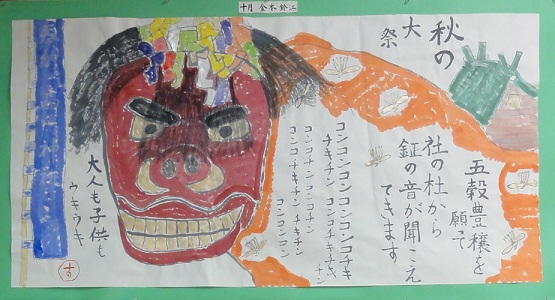 十月 金本 鈴江
秋の
大
祭
五穀豊穣を
願って
社の杜から
鉦の音が聞こえ
てきます
コンコンコンコンコンコチキ
チキチン コンコチキチキチン
コンコチキチンコンコチン
コンコチキチンチキチン
コンコンコン
大人も子供も
ウキウキ